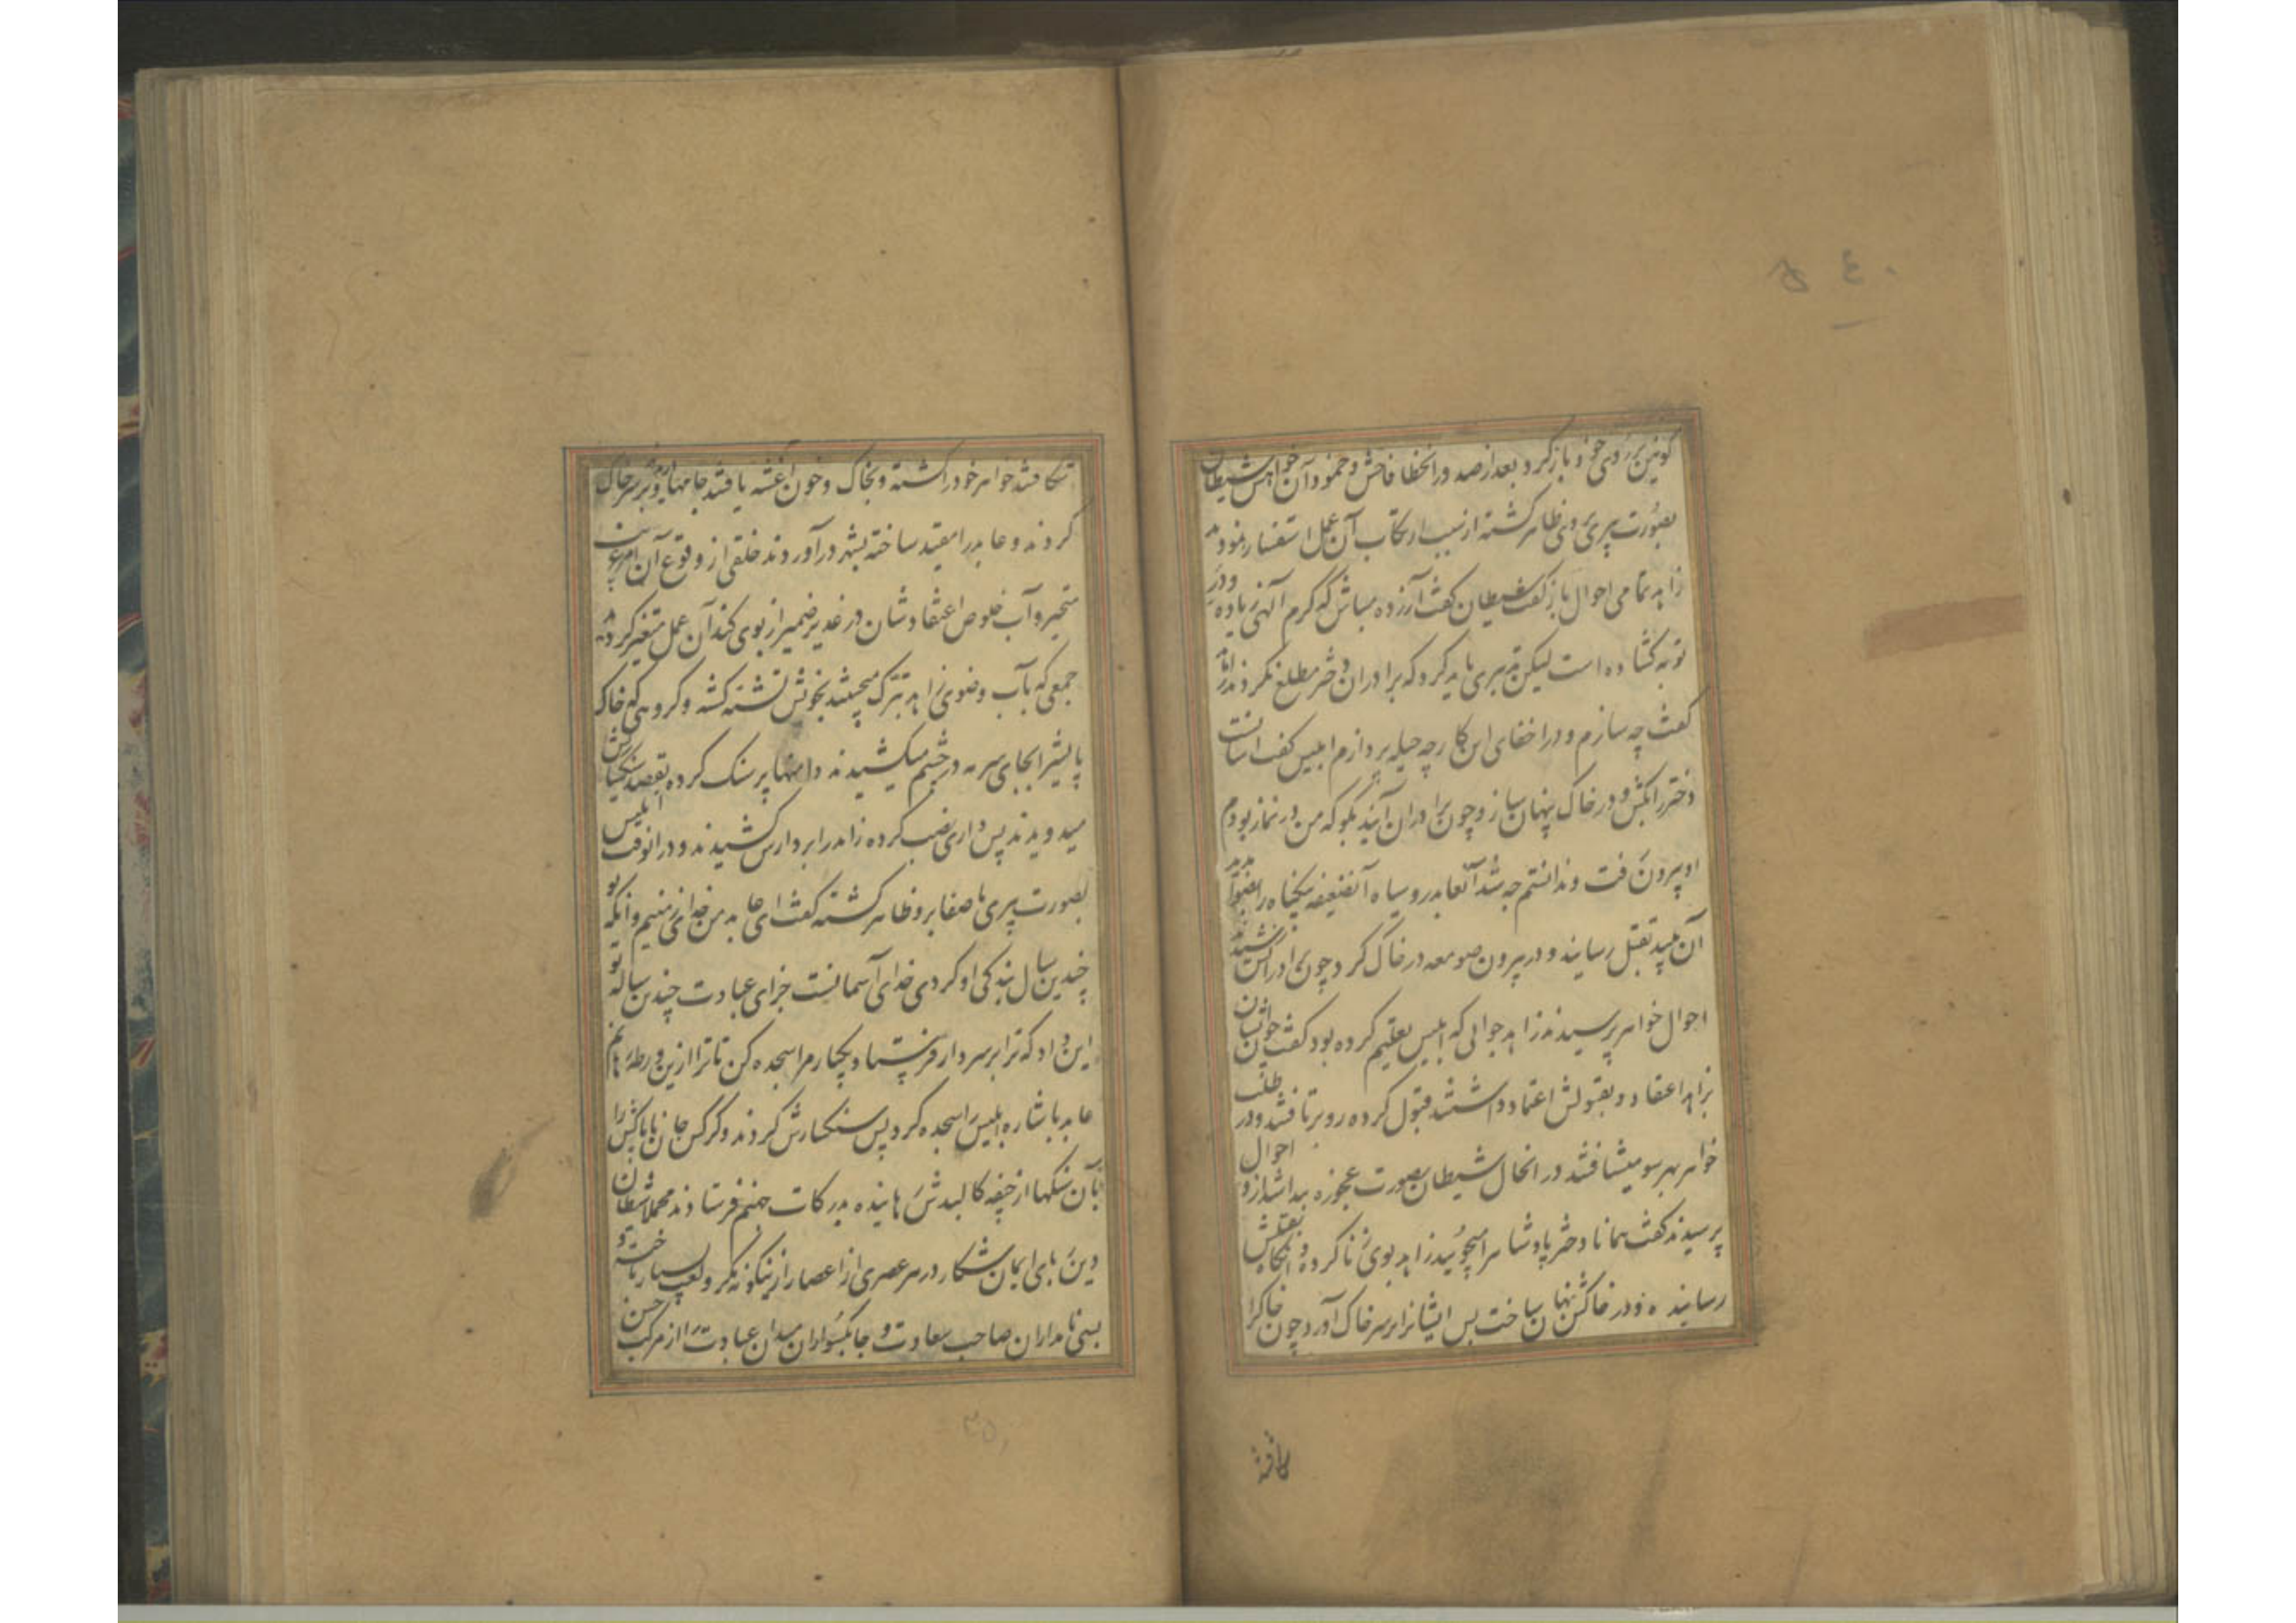 کونین بر روی خود باز کرد و بعد از صدور انخطا فاحش و خمود آن خواهش شیطان
بصورت پیری بروی ظاهر کشته از سبب ارتکاب آن عمل استفسار نمود
زاهد تمامی احوال باز کفت شیطان کفت آرزده مباش که کرم الهی زیاده و در
توبه کشاده است لیکن تدبیری باید کرد که برادران دختر مطلع نکردند زاهد
کفت چه سازم و در اخفای این کار چه حیله پردازم ابلیس کفت آسانست
دختر را بکش و در خاک پنهان ساز و چون برادران آیند بکو که من در نماز بودم
او بیرون رفت و ندانستم چه شد آن عابد روسیاه آنضعیفه بیکناه را
آن پلید بقتل رسانید و در بیرون صومعه در خاک کرد چون برادرانش
احوال خواهر پرسیدند زاهد جوابی که ابلیس تعلیم کرده بود کفت چون ایشان
بزاهد اعتقاد و بقولش اعتماد داشتند قبول کرده رو برتافتند و در طلب
خواهر بهر سو میشتافتند در انحال شیطان بصورت عجوزه پیدا شد از و احوال
پرسیدند کفت همانا دختر پادشاه را میجوئید زاهد بوی زنا کرده و آنکاه بقتلش
رسانیده و در خاکش پنهان ساخت پس ایشانرا بر سر خاک آورد چون خاکرا
شکافتند
شکافتند خواهر خود را کشته و بخاک و خون آغشته یافتند جامها دریده و بر سر خاک
کردند و عابد را مقید ساخته بشهر درآوردند خلقی از وقوع آن امر غریب
متحیر و آب خلوص اعتقادشان در غدیر ضمیر از بوی کند آن عمل متغیر کردید
جمعی که بآب وضوی زاهد تبرک میجستند بخونش تشنه کشته و کروهی که خاک
پایش را بجای سرمه در چشم میکشیدند دامنها پر سنک کرده بقصد سنکسارش
میدویدند پس داری نصب کرده زاهد را بر دار کشیدند و در انوقت ابلیس
بصورت پیری باصفا برو ظاهر کشته کفت ای عابد من خدای زمینم و آنکه تو
چندین سال بندکی او کردی خدای آسمانست جزای عبادت چندین ساله تو
این داد که ترا بر سر دار فرستاد یکبار مرا سجده کن تا ترا ازین ورطه رهانم
عابد باشاره ابلیس را سجده کرد پس سنکسارش کردند و کرکس جان ناپاکش را
بآن سنکها از جیفه کالبدش رهانیده بدرکات جهنم فرستادند مجملا شیطان
دین ربای ایمان شکار در هر عصری از اعصار ازینکونه مکر و لعب بسیار باخته و
بسی نامداران صاحب سعادت و چابکسواران میدان عبادت را از مرکب حسن